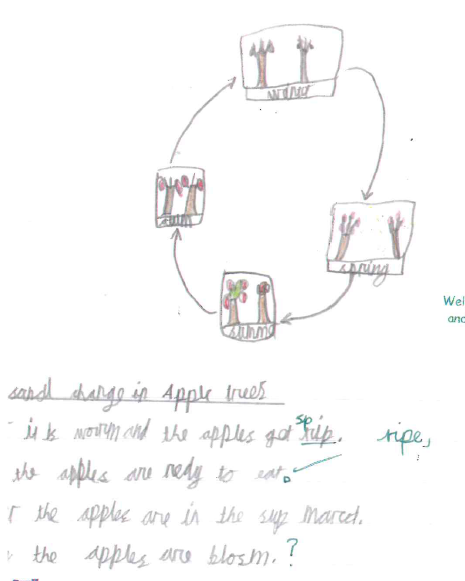 spring
Wel
and
change in Apple trees
it is worm and the apples got rip. sp ripe,
the apples are redy to eat.
the apples are in the sup marcet.
the apples are blosm. ?